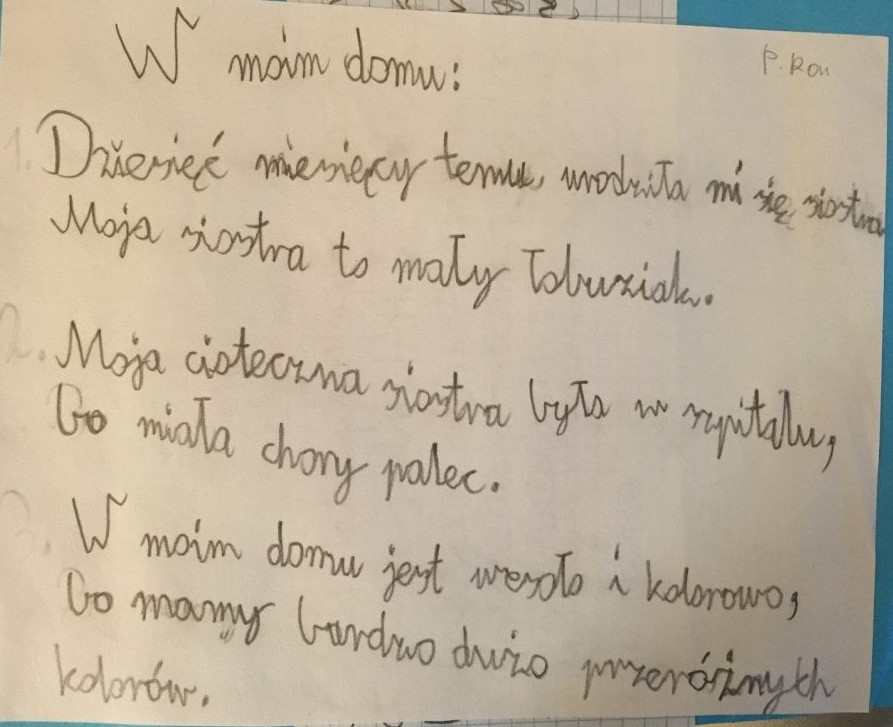 W moim domu:
P. Kon
1. Dziesięć miesięcy temu, urodziła mi się siostra
Moja siostra to mały łobuziak.
2. Moja cioteczna siostra była w szpitalu,
Bo miała chory palec.
3. W moim domu jest wesoło i kolorowo,
Bo mamy bardzo dużo przeróżnych
kolorów.